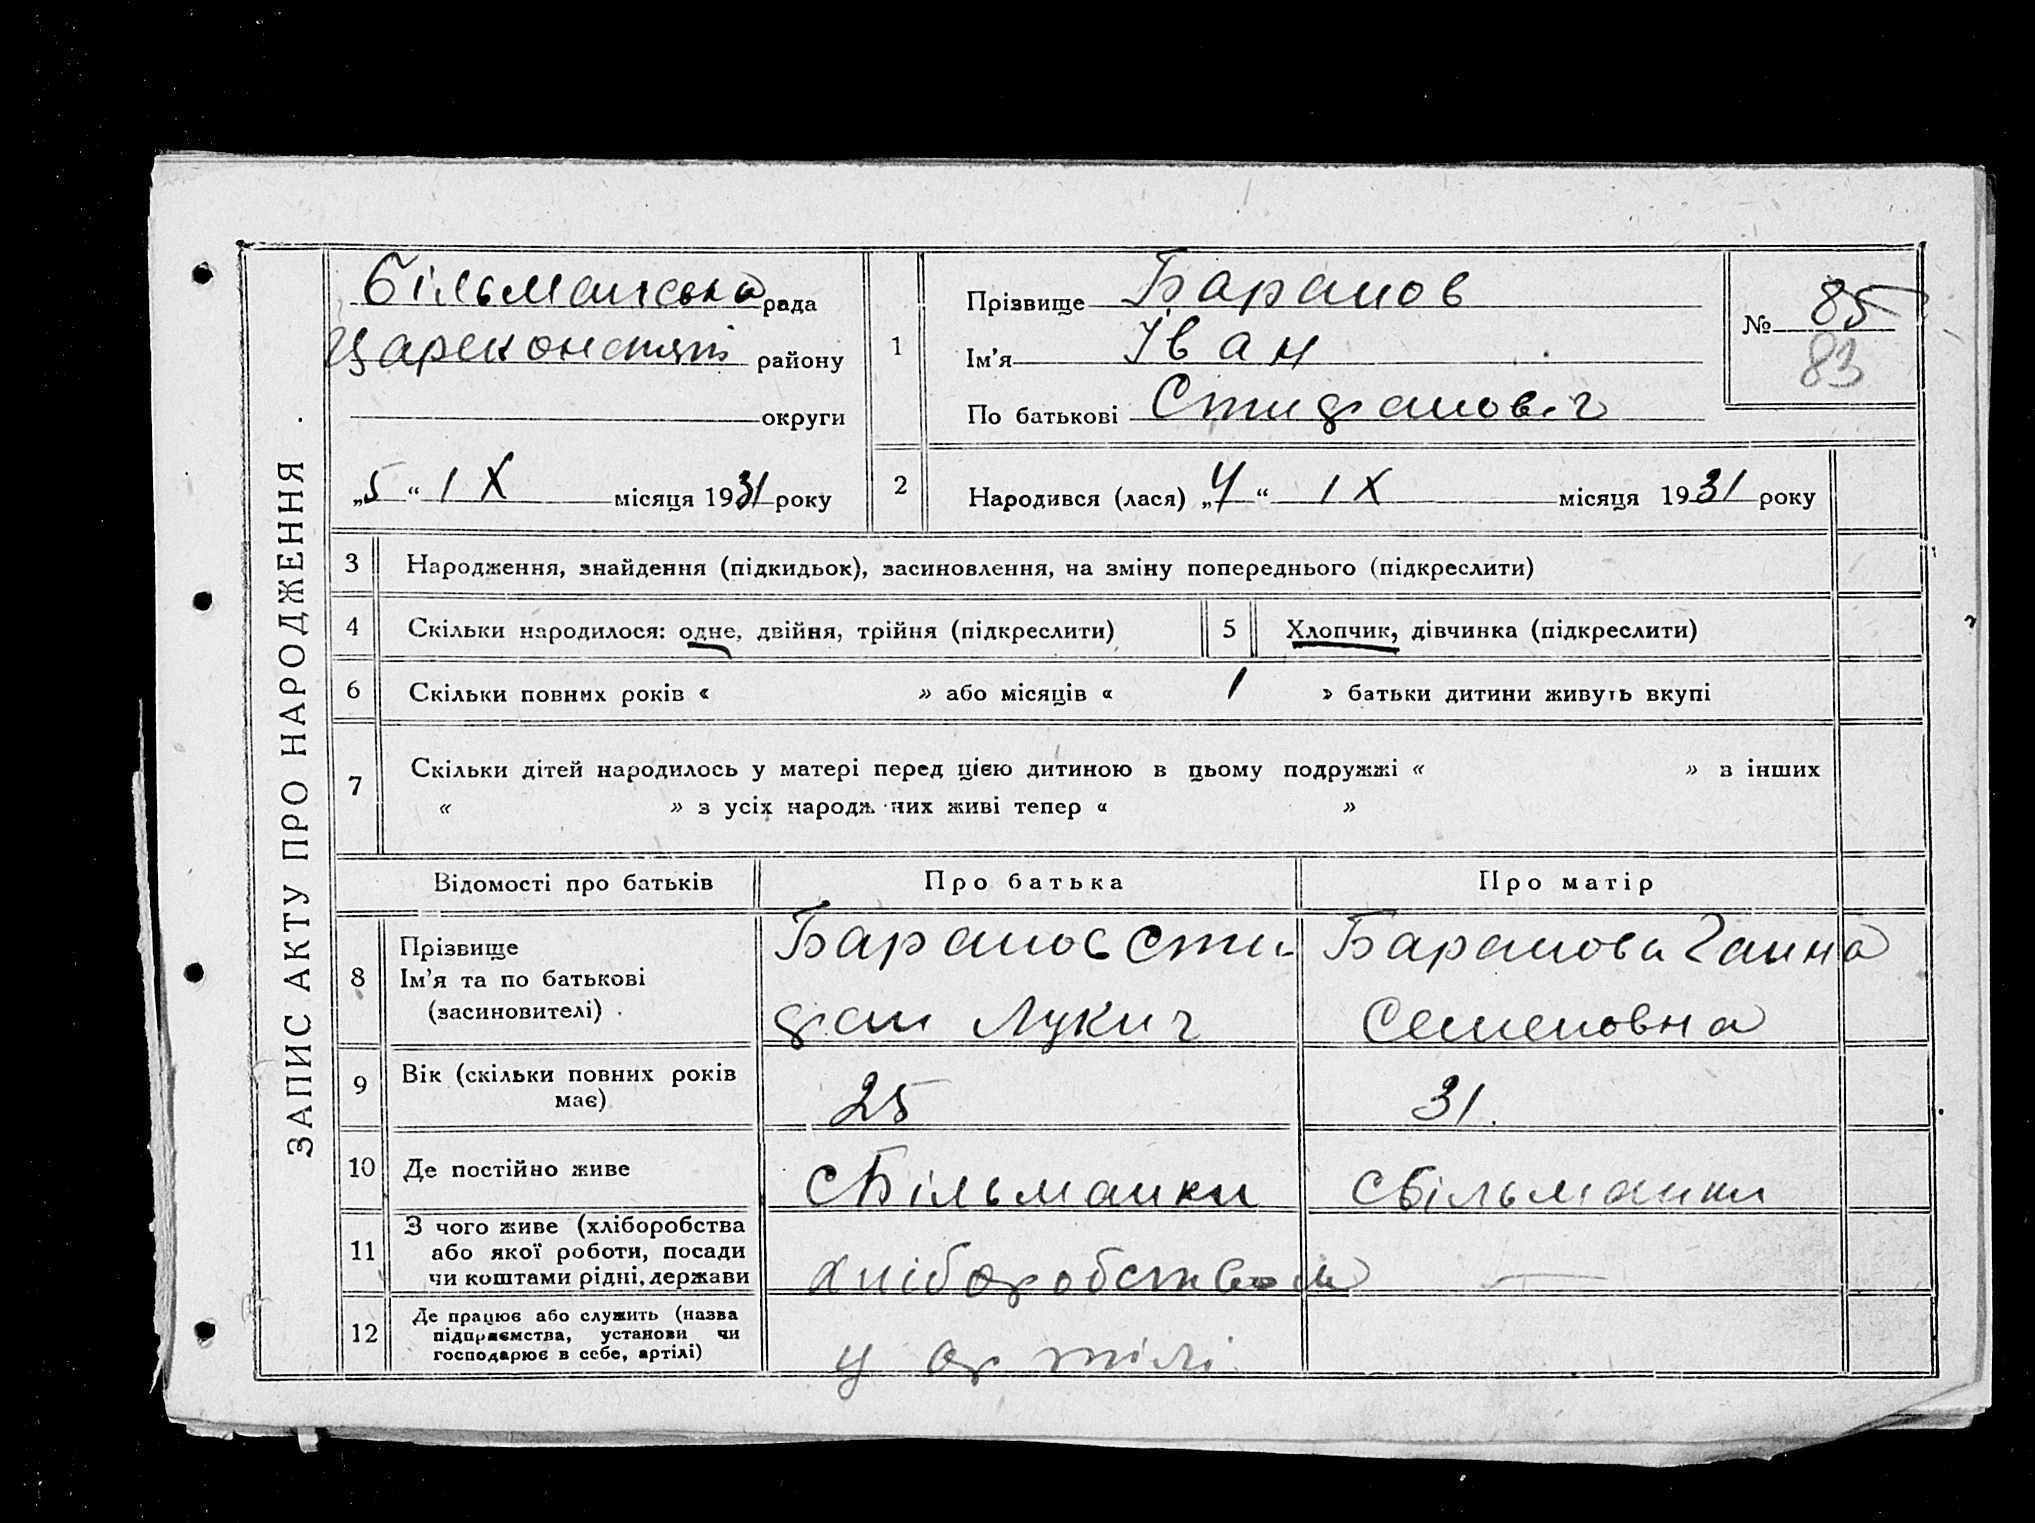 ЗАПИС АКТУ ПРО НАРОДЖЕННЯ
Більманська рада
Цареконстянт району
округи
„5“ IX місяця 1931 року
1
Прізвище Баранов
Ім'я Іван
По батькові Стифанович
№ 85
83
2
Народився (лася) „4“ IX місяця 1931 року
3 Народження, знайдення (підкидьок), засиновлення, на зміну попереднього (підкреслити)
4 Скільки народилося: одне, двійня, трійня (підкреслити)
5 Хлопчик, дівчинка (підкреслити)
6 Скільки повних років « » або місяців « 1 » батьки дитини живуть вкупі
7 Скільки дітей народилось у матері перед цією дитиною в цьому подружжі « » в інших
« » з усіх народж них живі тепер « »
Відомості про батьків Про батька Про матір
8 Прізвище
Ім'я та по батькові
(засиновителі)
Баранов Сти
фан Лукич
Баранова Ганна
Семеновна
9 Вік (скільки повних років
має)
25 31.
10 Де постійно живе с Більманки с Більманки
11 З чого живе (хліборобства
або якої роботи, посади
чи коштами рідні, держави
хліборобством —
12 Де працює або служить (назва
підприємства, установи чи
господарює в себе, артілі)
у артілі